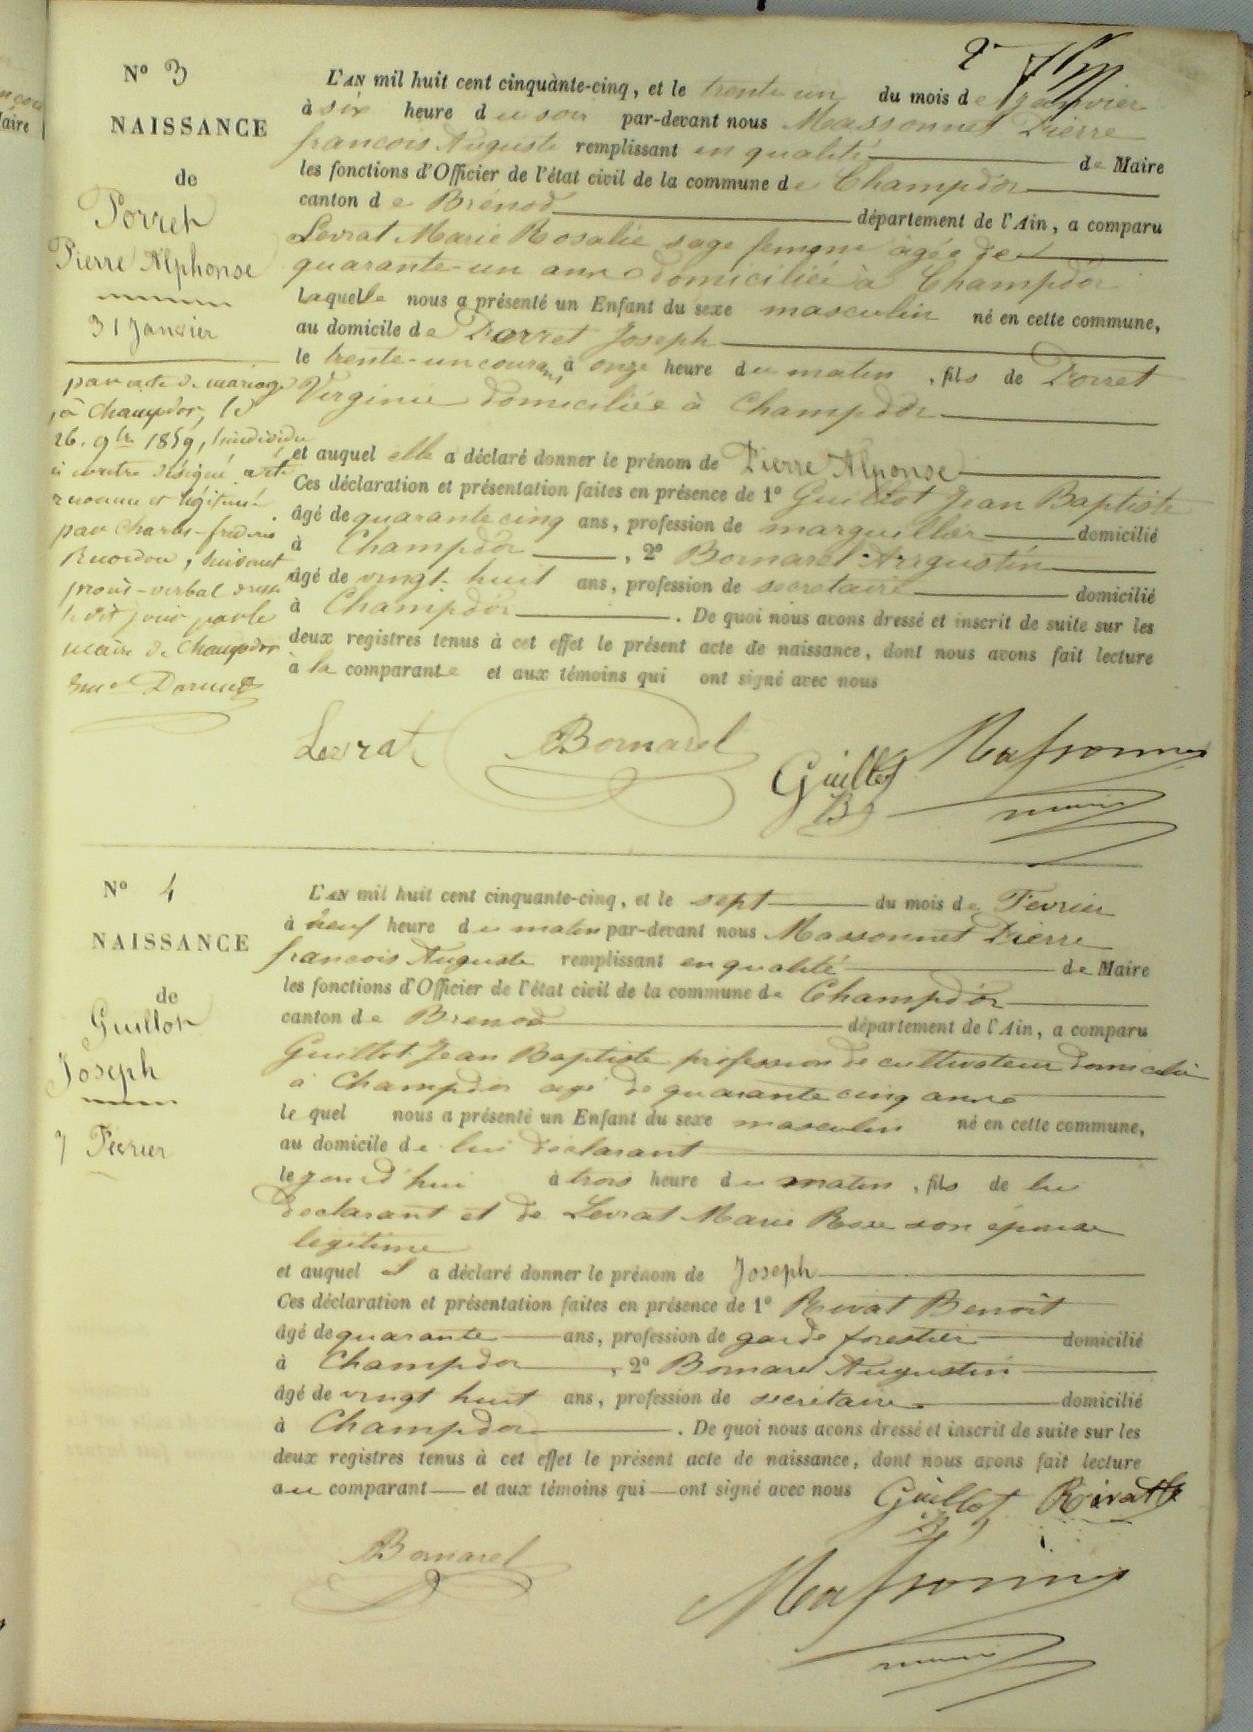 2e
N° 3
NAISSANCE
de
Porret
Pierre Alphonse
31 Janvier
par acte de mariage
à Champdor, le
26. 9bre 1859, l'individu
ci contre désigné a été
reconnu et légitimé
par Charles-fréderic
suivant
procès-verbal dressé
le dit jour par le
maire de Champdor
L'AN mil huit cent cinquante-cinq, et le trente un du mois de Janvier
à six heure du soir par-devant nous Massonnet Pierre
francois Auguste remplissant en qualité de Maire
les fonctions d'Officier de l'état civil de la commune de Champdor
canton de Brénod département de l'Ain, a comparu
Levrat Marie Rosalie sage femme âgée de
quarante-un ans domiciliée à Champdor
Laquelle nous a présenté un Enfant du sexe masculin né en cette commune,
au domicile de Porret Joseph
le trente-un courant, à onze heure du matin, fils de Porret
Virginie domiciliée à Champdor
et auquel elle a déclaré donner le prénom de Pierre Alponse
Ces déclaration et présentation faites en présence de 1° Guillot Jean Baptiste
âgé de quarante cinq ans, profession de marguiller domicilié
à Champdor, 2° Bornarel Augustin
âgé de vingt-huit ans, profession de secretaire domicilié
à Champdor. De quoi nous avons dressé et inscrit de suite sur les
deux registres tenus à cet effet le présent acte de naissance, dont nous avons fait lecture
à la comparante et aux témoins qui ont signé avec nous
Levrat Bornarel Guillot Massonnet
B maire
N° 4
NAISSANCE
de
Guillot
Joseph
7 Fevrier
L'AN mil huit cent cinquante-cinq, et le sept du mois de Fevrier
à neuf heure du matin par-devant nous Massonnet Pierre
francois Auguste remplissant en qualité de Maire
les fonctions d'Officier de l'état civil de la commune de Champdor
canton de Brenod département de l'Ain, a comparu
Guillot Jean Baptiste profession de cultivateur domicilié
à Champdor agé de quarante cinq ans
le quel nous a présenté un Enfant du sexe masculin né en cette commune,
au domicile de lui déclarant
le jourd'hui à trois heure du matin, fils de lui
declarant et de Levrat Marie Rose son épouse
legitime
et auquel il a déclaré donner le prénom de Joseph
Ces déclaration et présentation faites en présence de 1° Rivat Benoît
âgé de quarante ans, profession de garde forestier domicilié
à Champdor, 2° Bornarel Augustin
âgé de vingt huit ans, profession de secrétaire domicilié
à Champdor. De quoi nous avons dressé et inscrit de suite sur les
deux registres tenus à cet effet le présent acte de naissance, dont nous avons fait lecture
au comparant et aux témoins qui ont signé avec nous Guillot Rivat
Bornarel Massonnet
maire